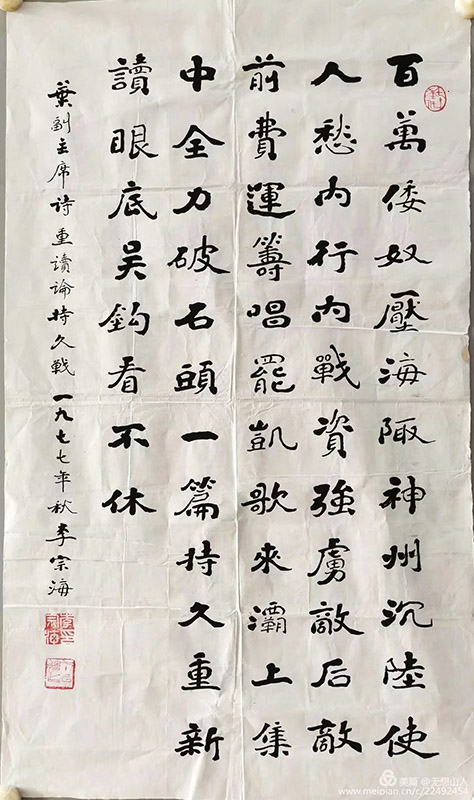 百萬倭奴壓海陬神州沉陸使
人愁内行内戰資強虜敵后敵
前費運籌唱罷凱歌来灞上集
中全力破石頭一篇持久重新
讀眼底吴鈎看不休
葉副主席诗重讀論持久戰 一九七七年秋李宗海
美篇 @无想山人
www.meipian.cn/c/22492454